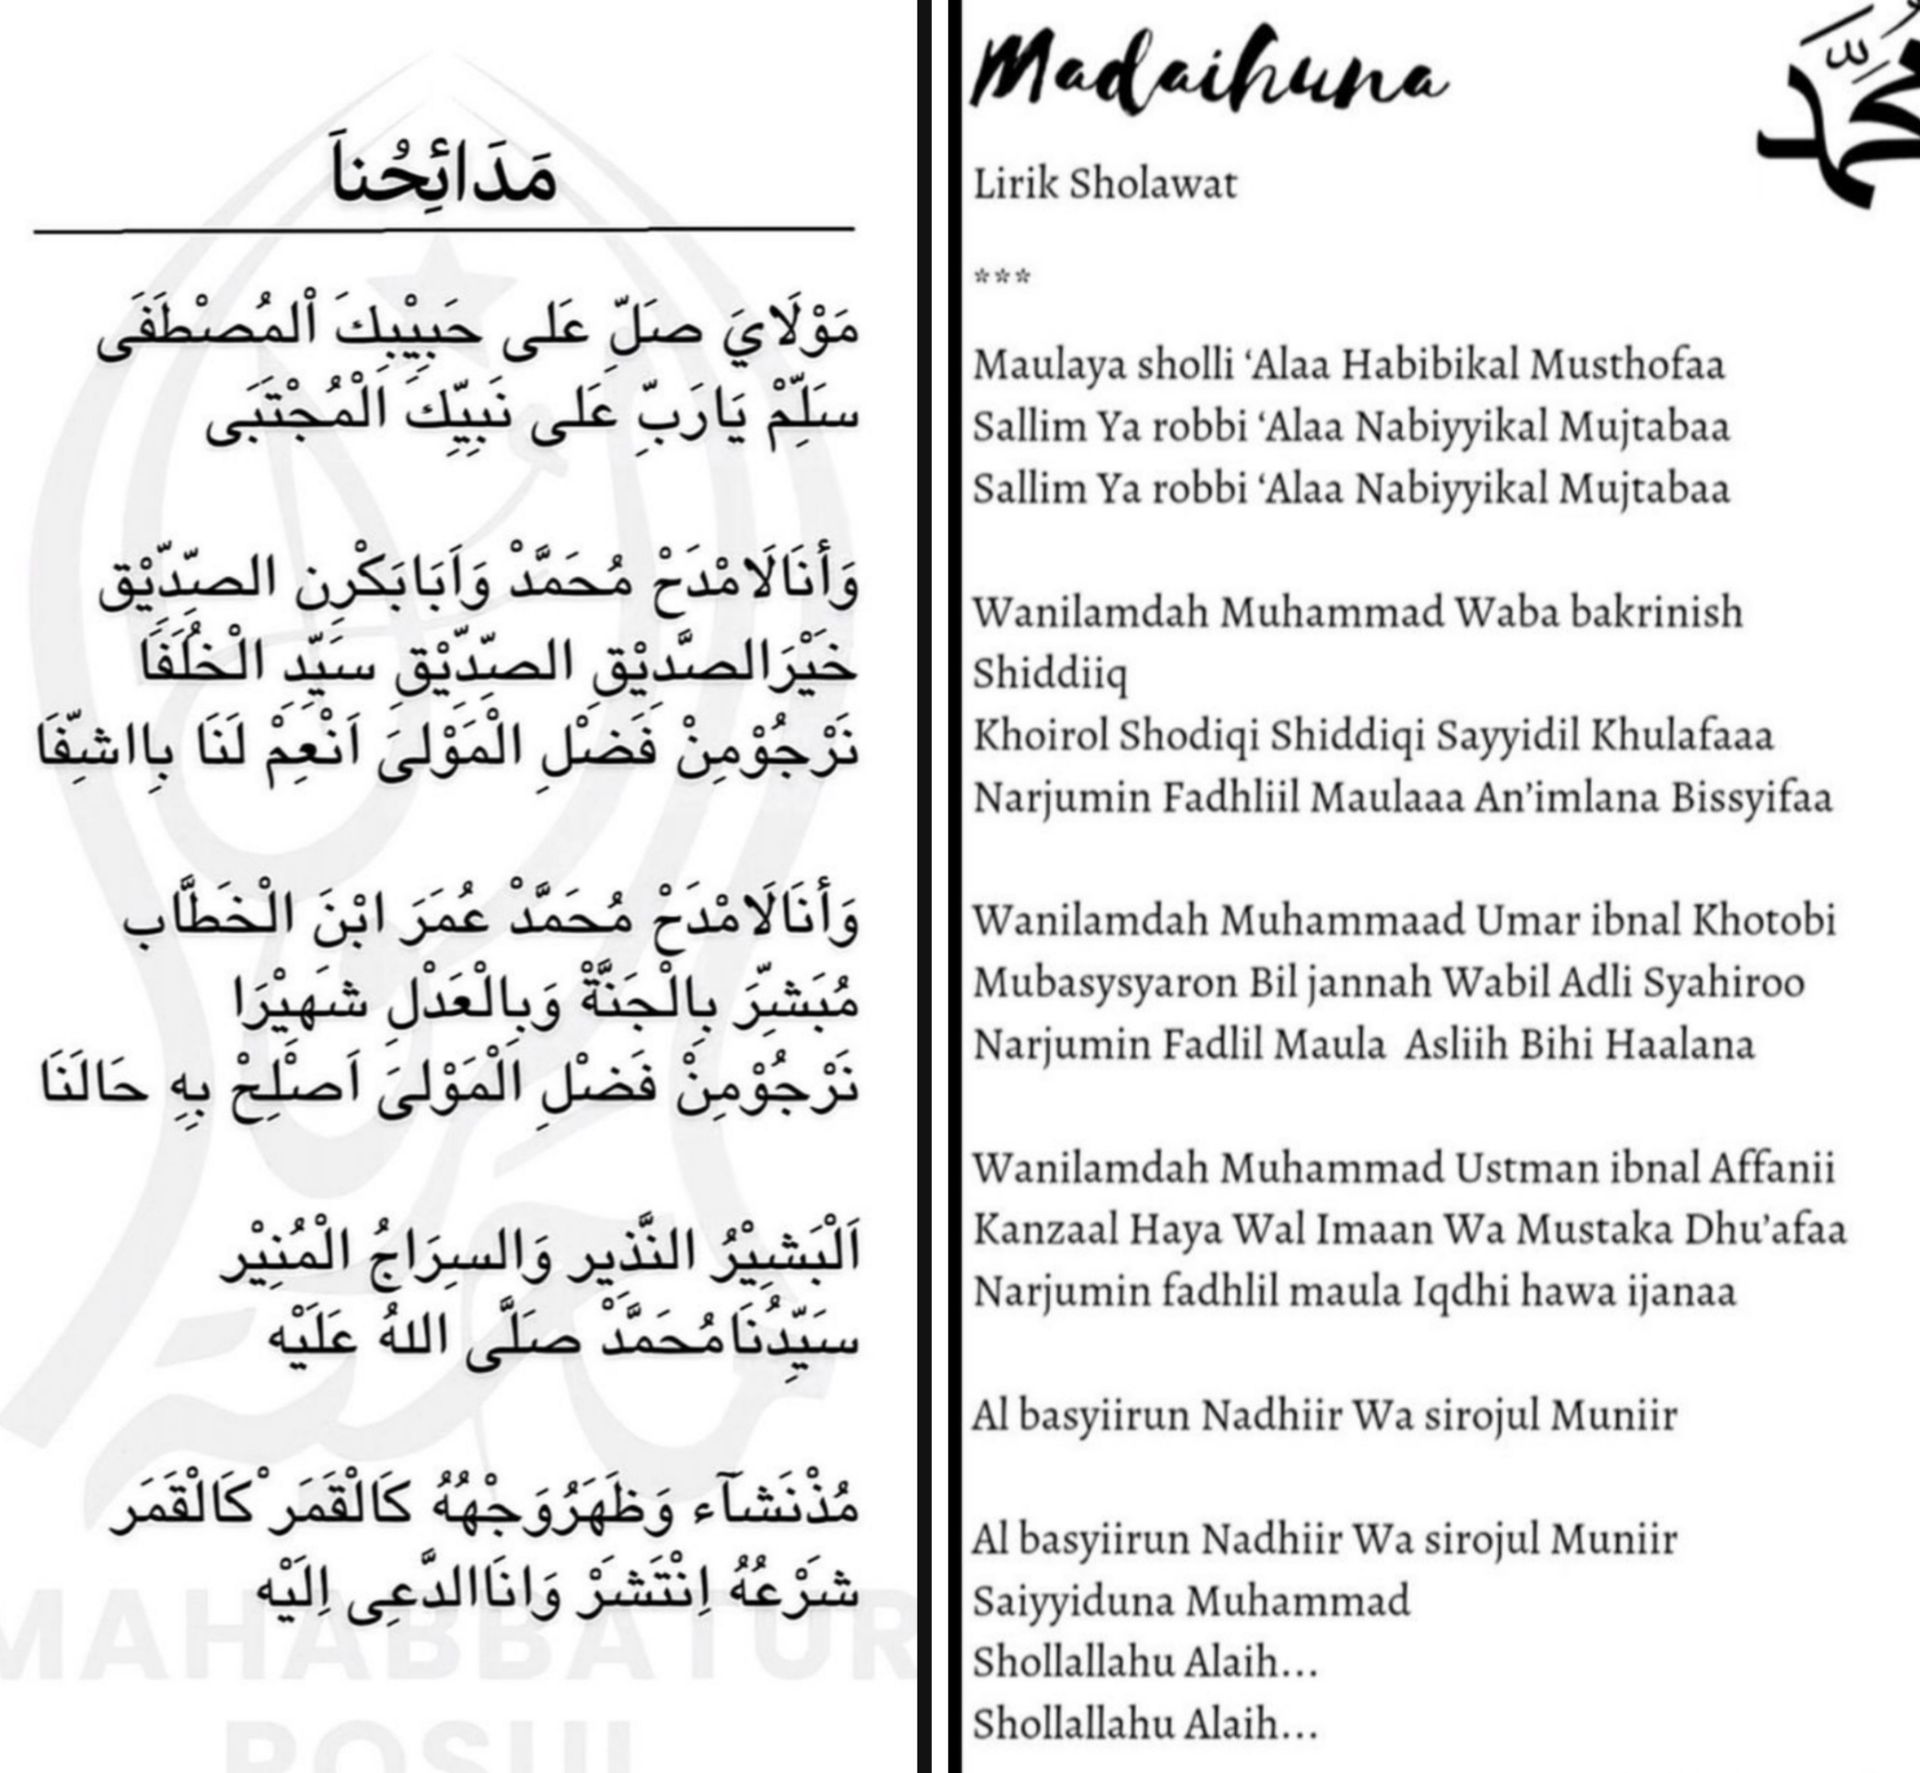 مَدَائِحُناَ
مَوْلَايَ صَلِّ عَلى حَبِيْبِكَ اْلمُصْطَفَى
سَلِّمْ يَارَبِّ عَلى نَبِيِّكَ الْمُجْتَبَى
وَأَنَالَامْدَحْ مُحَمَّدْ وَاَبَابَكْرِن الصِّدِّيْق
خَيْرَالصَّدِيْقِ الصِّدِّيْقِ سَيِّدِ الْخُلَفَا
نَرْجُوْمِنْ فَضْلِ الْمَوْلىَ اَنْعِمْ لَنَا بِااشِفَّا
وَأَنَالَامْدَحْ مُحَمَّدْ عُمَرَ ابْنَ الْخَطَّاب
مُبَشِّرَ بِالْجَنَّةْ وَبِالْعَدْلِ شَهِيْرَا
نَرْجُوْمِنْ فَضْلِ الْمَوْلىَ اَصْلِحْ بِهِ حَالَنَا
اَلْبَشِيْرُ النَّذِير وَالسِرَاجُ الْمُنِيْر
سَيِّدُنَامُحَمَّدْ صَلَّى اللهُ عَلَيْه
مُذْنَشآء وَظَهَرُوَجْهُهُ كَالْقَمَرْ كَالْقَمَر
شَرْعُهُ اِنْتَشَرْ وَانَاالدَّعِى اِلَيْه
MAHABBATUR
ROSUL
Madaihuna
محمد
Lirik Sholawat
***
Maulaya sholli ‘Alaa Habibikal Musthofaa
Sallim Ya robbi ‘Alaa Nabiyyikal Mujtabaa
Sallim Ya robbi ‘Alaa Nabiyyikal Mujtabaa
Wanilamdah Muhammad Waba bakrinish
Shiddiiq
Khoirol Shodiqi Shiddiqi Sayyidil Khulafaaa
Narjumin Fadhliil Maulaaa An’imlana Bissyifaa
Wanilamdah Muhammaad Umar ibnal Khotobi
Mubasysyaron Bil jannah Wabil Adli Syahiroo
Narjumin Fadlil Maula  Asliih Bihi Haalana
Wanilamdah Muhammad Ustman ibnal Affanii
Kanzaal Haya Wal Imaan Wa Mustaka Dhu’afaa
Narjumin fadhlil maula Iqdhi hawa ijanaa
Al basyiirun Nadhiir Wa sirojul Muniir
Al basyiirun Nadhiir Wa sirojul Muniir
Saiyyiduna Muhammad
Shollallahu Alaih...
Shollallahu Alaih...